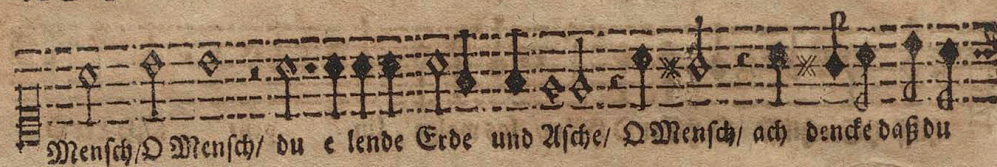 Menſch/O Menſch/ du e lende Erde und Aſche/ O Menſch/ ach dencke daß du